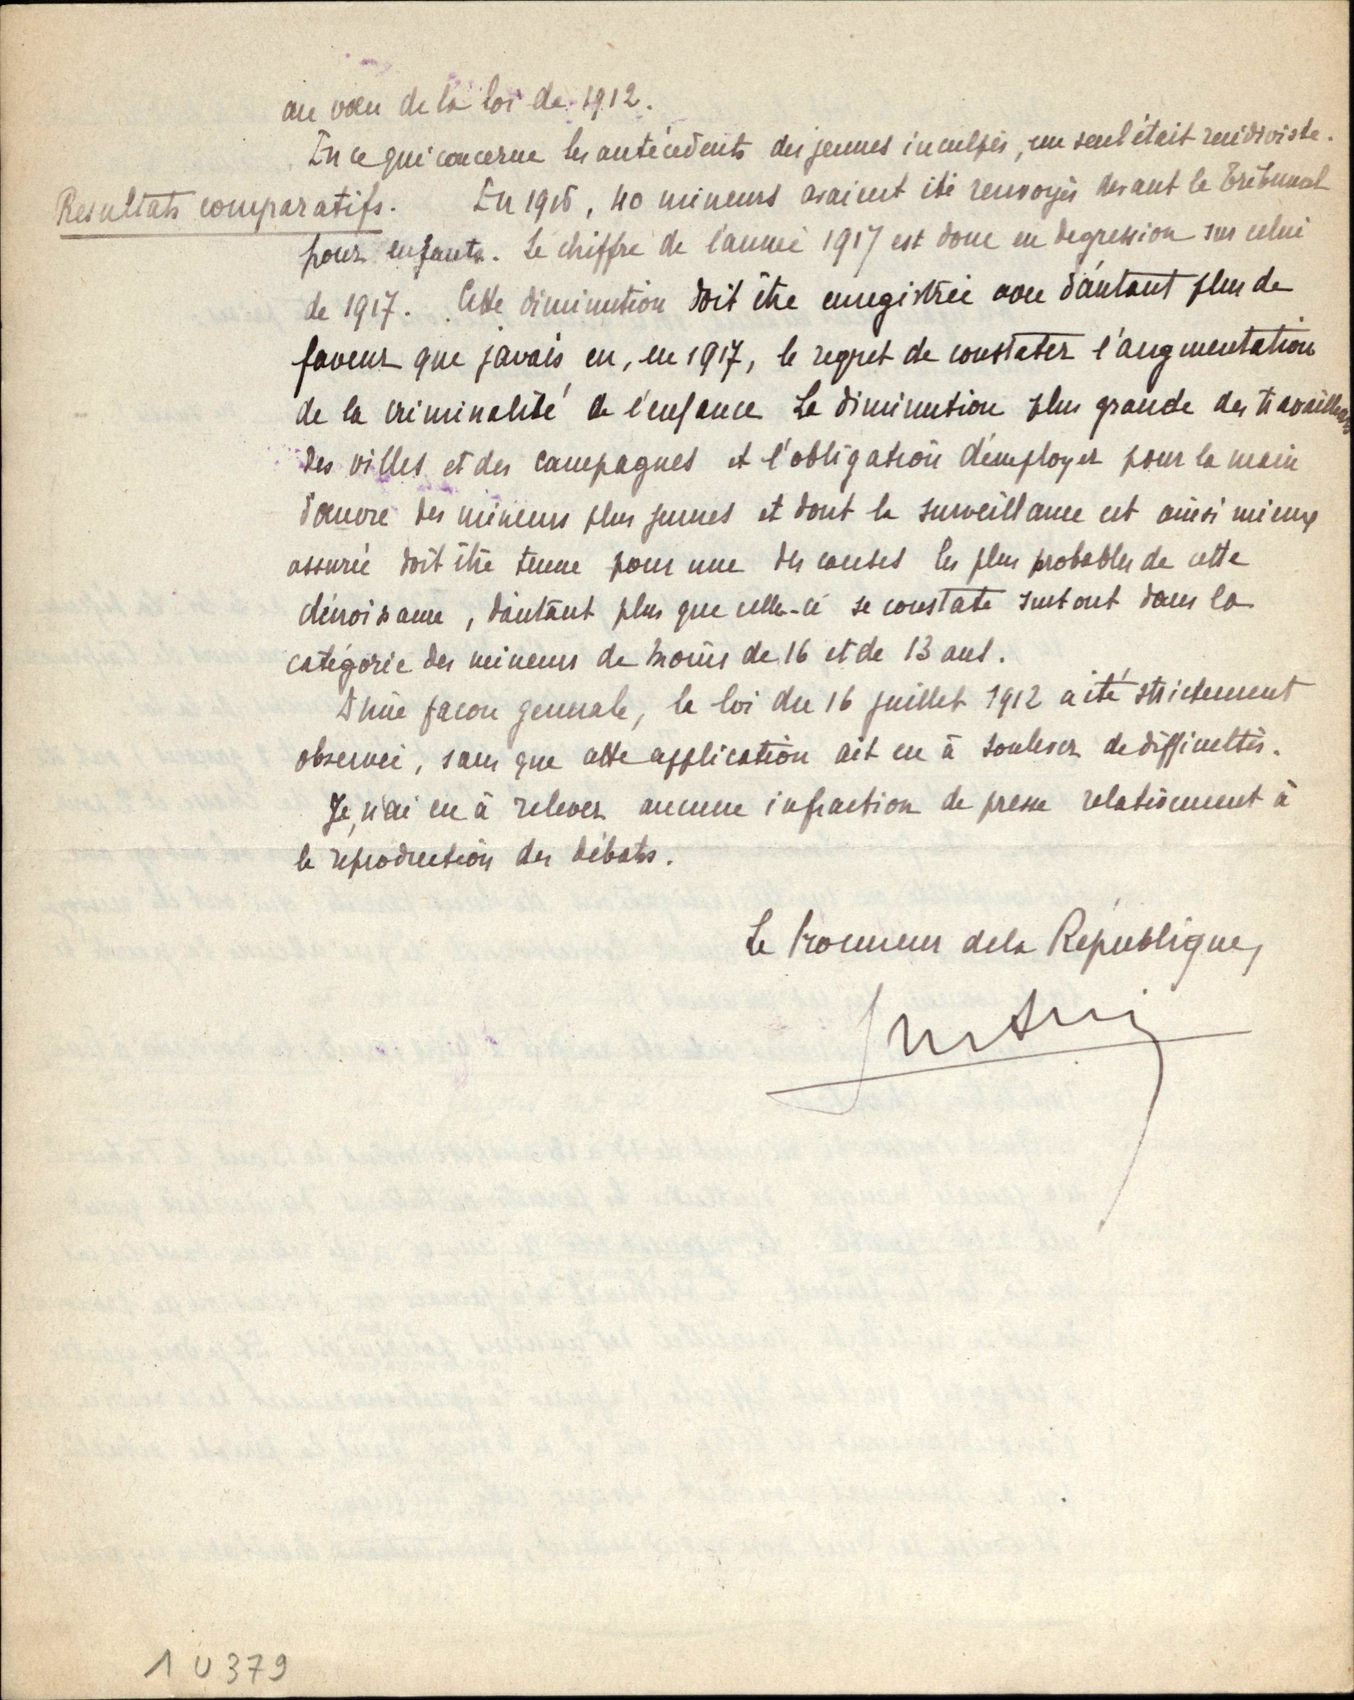 au vœu de la loi de 1912.
En ce qui concerne les antécédents des jeunes inculpés, un seul était récidiviste.
Resultats comparatifs. En 1916, 40 mineurs avaient été renvoyés devant le Tribunal
pour enfants. Le chiffre de l'année 1917 est donc en degression sur celui
de 1917. Cette diminution doit être enregistrée avec d'autant plus de
faveur que j'avais eu, en 1917, le regret de constater l'augmentation
de la criminalité de l'enfance La diminution plus grande des travailleurs
des villes et des campagnes et l'obligation d'employer pour la main
d'œuvre des mineurs plus jeunes et dont la surveillance est ainsi mieux
assurée doit être tenue pour une des causes les plus probables de cette
décroissance, d'autant plus que celle-ci se constate surtout dans la
catégorie des mineurs de moins de 16 et de 13 ans.
D'une façon generale, la loi du 16 juillet 1912 a été strictement
observée, sans que cette application ait eu à soulever de difficultés.
Je n'ai eu à relever aucune infraction de presse relativement à
la reproduction des débats.
Le Procureur de la République,
1 U 379